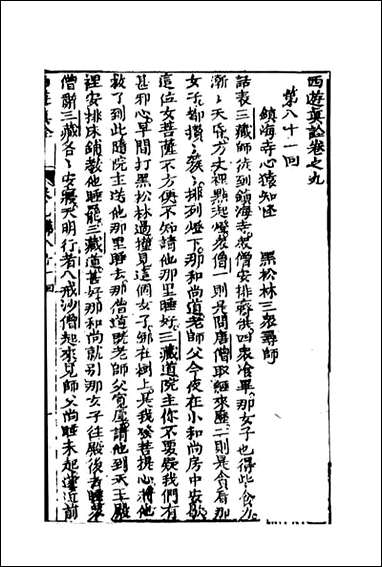 西遊真詮卷之九
第八十一回
鎮海寺心猿知怪 黑松林三衆尋師
話表三藏師徒到鎮海寺衆僧安排齋供四衆食畢那女子也得些食力
漸々天昏方丈裡點起燈衆僧一則是問唐僧取經來歷二則是貪看那
女子都攢々簇々排列燈下那和尚道老師父今夜在小和尚房中安歇
這位女菩薩不方便不知請他那里睡好三藏道院主你不要疑我們有
甚邪心早間打黑松林過撞見這個女子綁在樹上是我發菩提心將他
救了到此隨院主送他那里睡去那僧道既老師父寬厚請他到天王殿
裡安排床鋪教他睡罷三藏道甚好那和尚就別那女子往殿後睡
僧辭三藏各々安寢天明行者八戒沙僧起來見師父尚睡未起近前